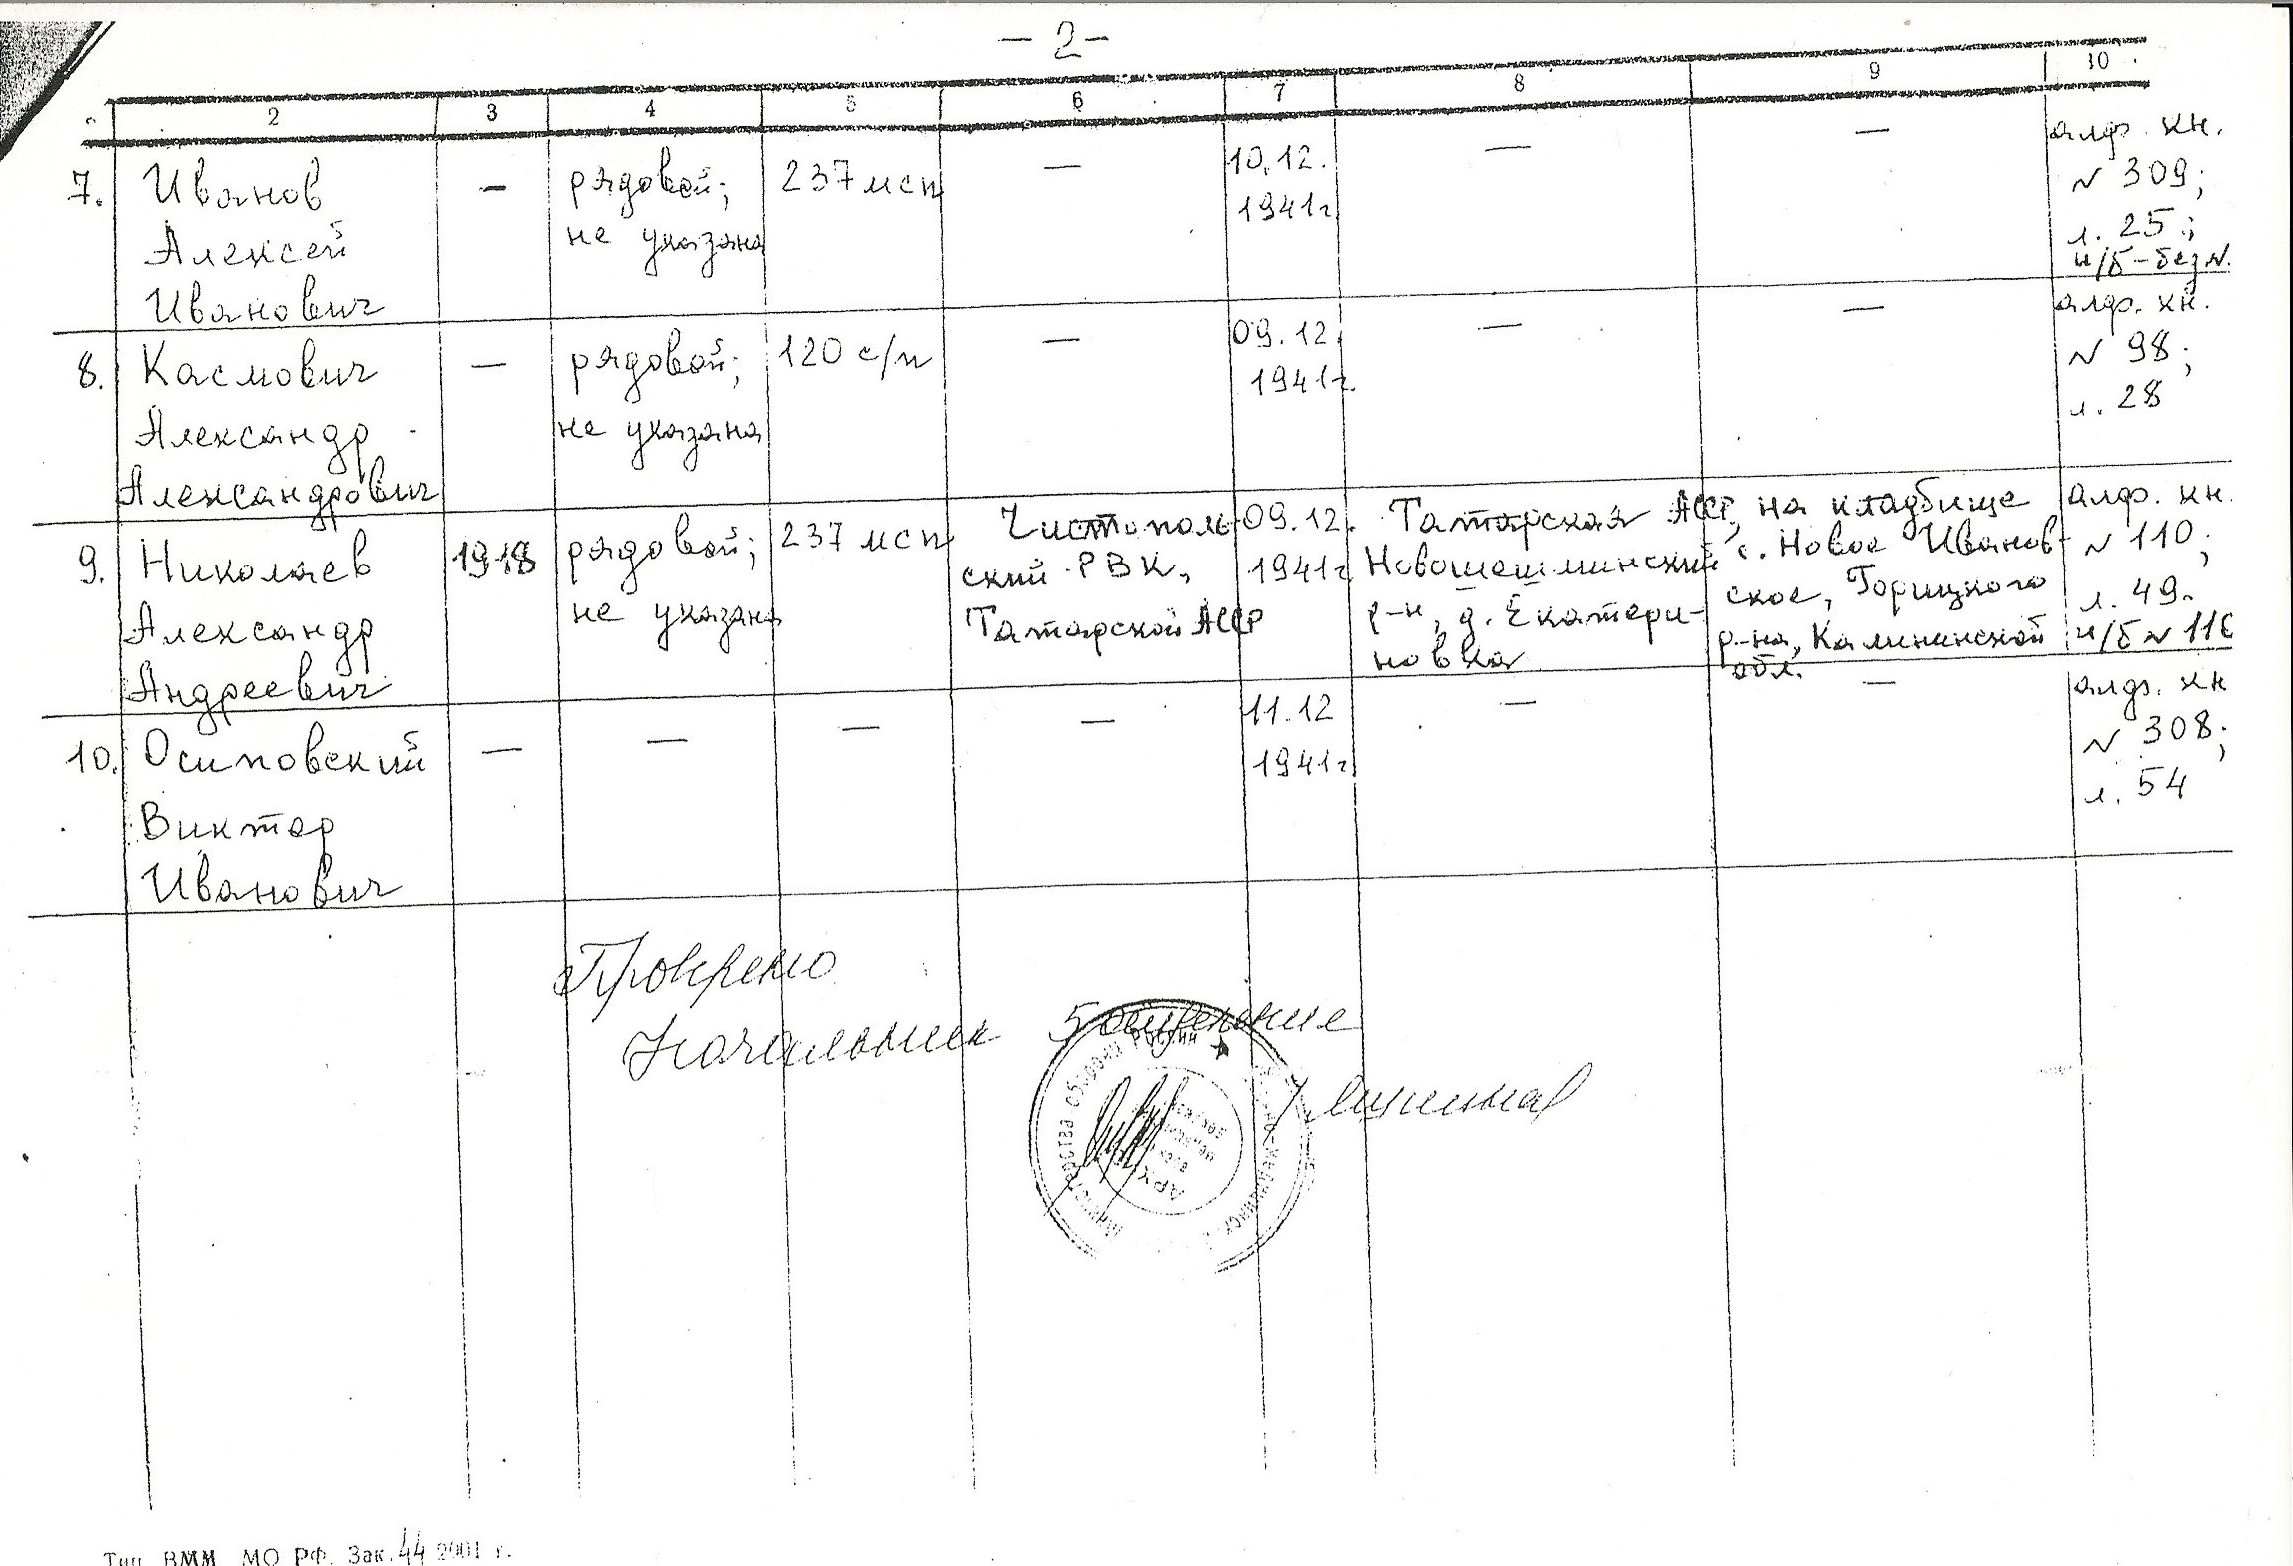 – 2 –
2 3 4 5 6 7 8 9 10
7. Иванов Алексей Иванович — рядовой; не указана 237 мсп — 10.12. 1941г — — алф. кн. N 309; л. 25; и/б – без N.
8. Касмович Александр Александрович — рядовой; не указана 120 с/п — 09.12. 1941г. — — алф. кн. N 98; л. 28
9. Николаев Александр Андреевич 1918 рядовой; не указана 237 мсп Чистопольский РВК, Татарской АССР 09.12. 1941г Татарская АССР, Новошешминский р-н, д. Екатериновка на кладбище с. Новое Ивановское, Горицкого р-на, Калининской обл. алф. кн. N 110; л. 49. и/б N 116
10. Осиповский Виктор Иванович — — — — 11.12 1941г — — алф. кн N 308; л. 54
Проверено
Начальник 5 отделения
Министерства обороны России
АРХ
Тип. ВММ МО РФ. Зак. 44 2001 г.